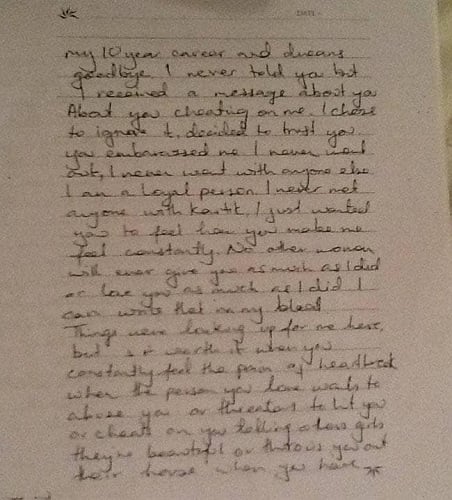 DATE:
my 10 year career and dreams
goodbye. I never told you but
I received a message about you
About you cheating on me. I chose
to ignore it, decided to trust you
you embarassed me I never went
out, I never went with anyone else
I am a Loyal person I never met
anyone with Kartik, I just wanted
you to feel how you make me
feel constantly. No other woman
will ever give you as much as I did
or love you as much as I did I
can write that in my blood
Things were looking up for me here,
but worth it when you
constantly feel the pain of heartbreak
when the person you love wants to
abuse you or threatens to hit you
or cheats on you telling other girls
they're beautiful or throws you out
their house when you have